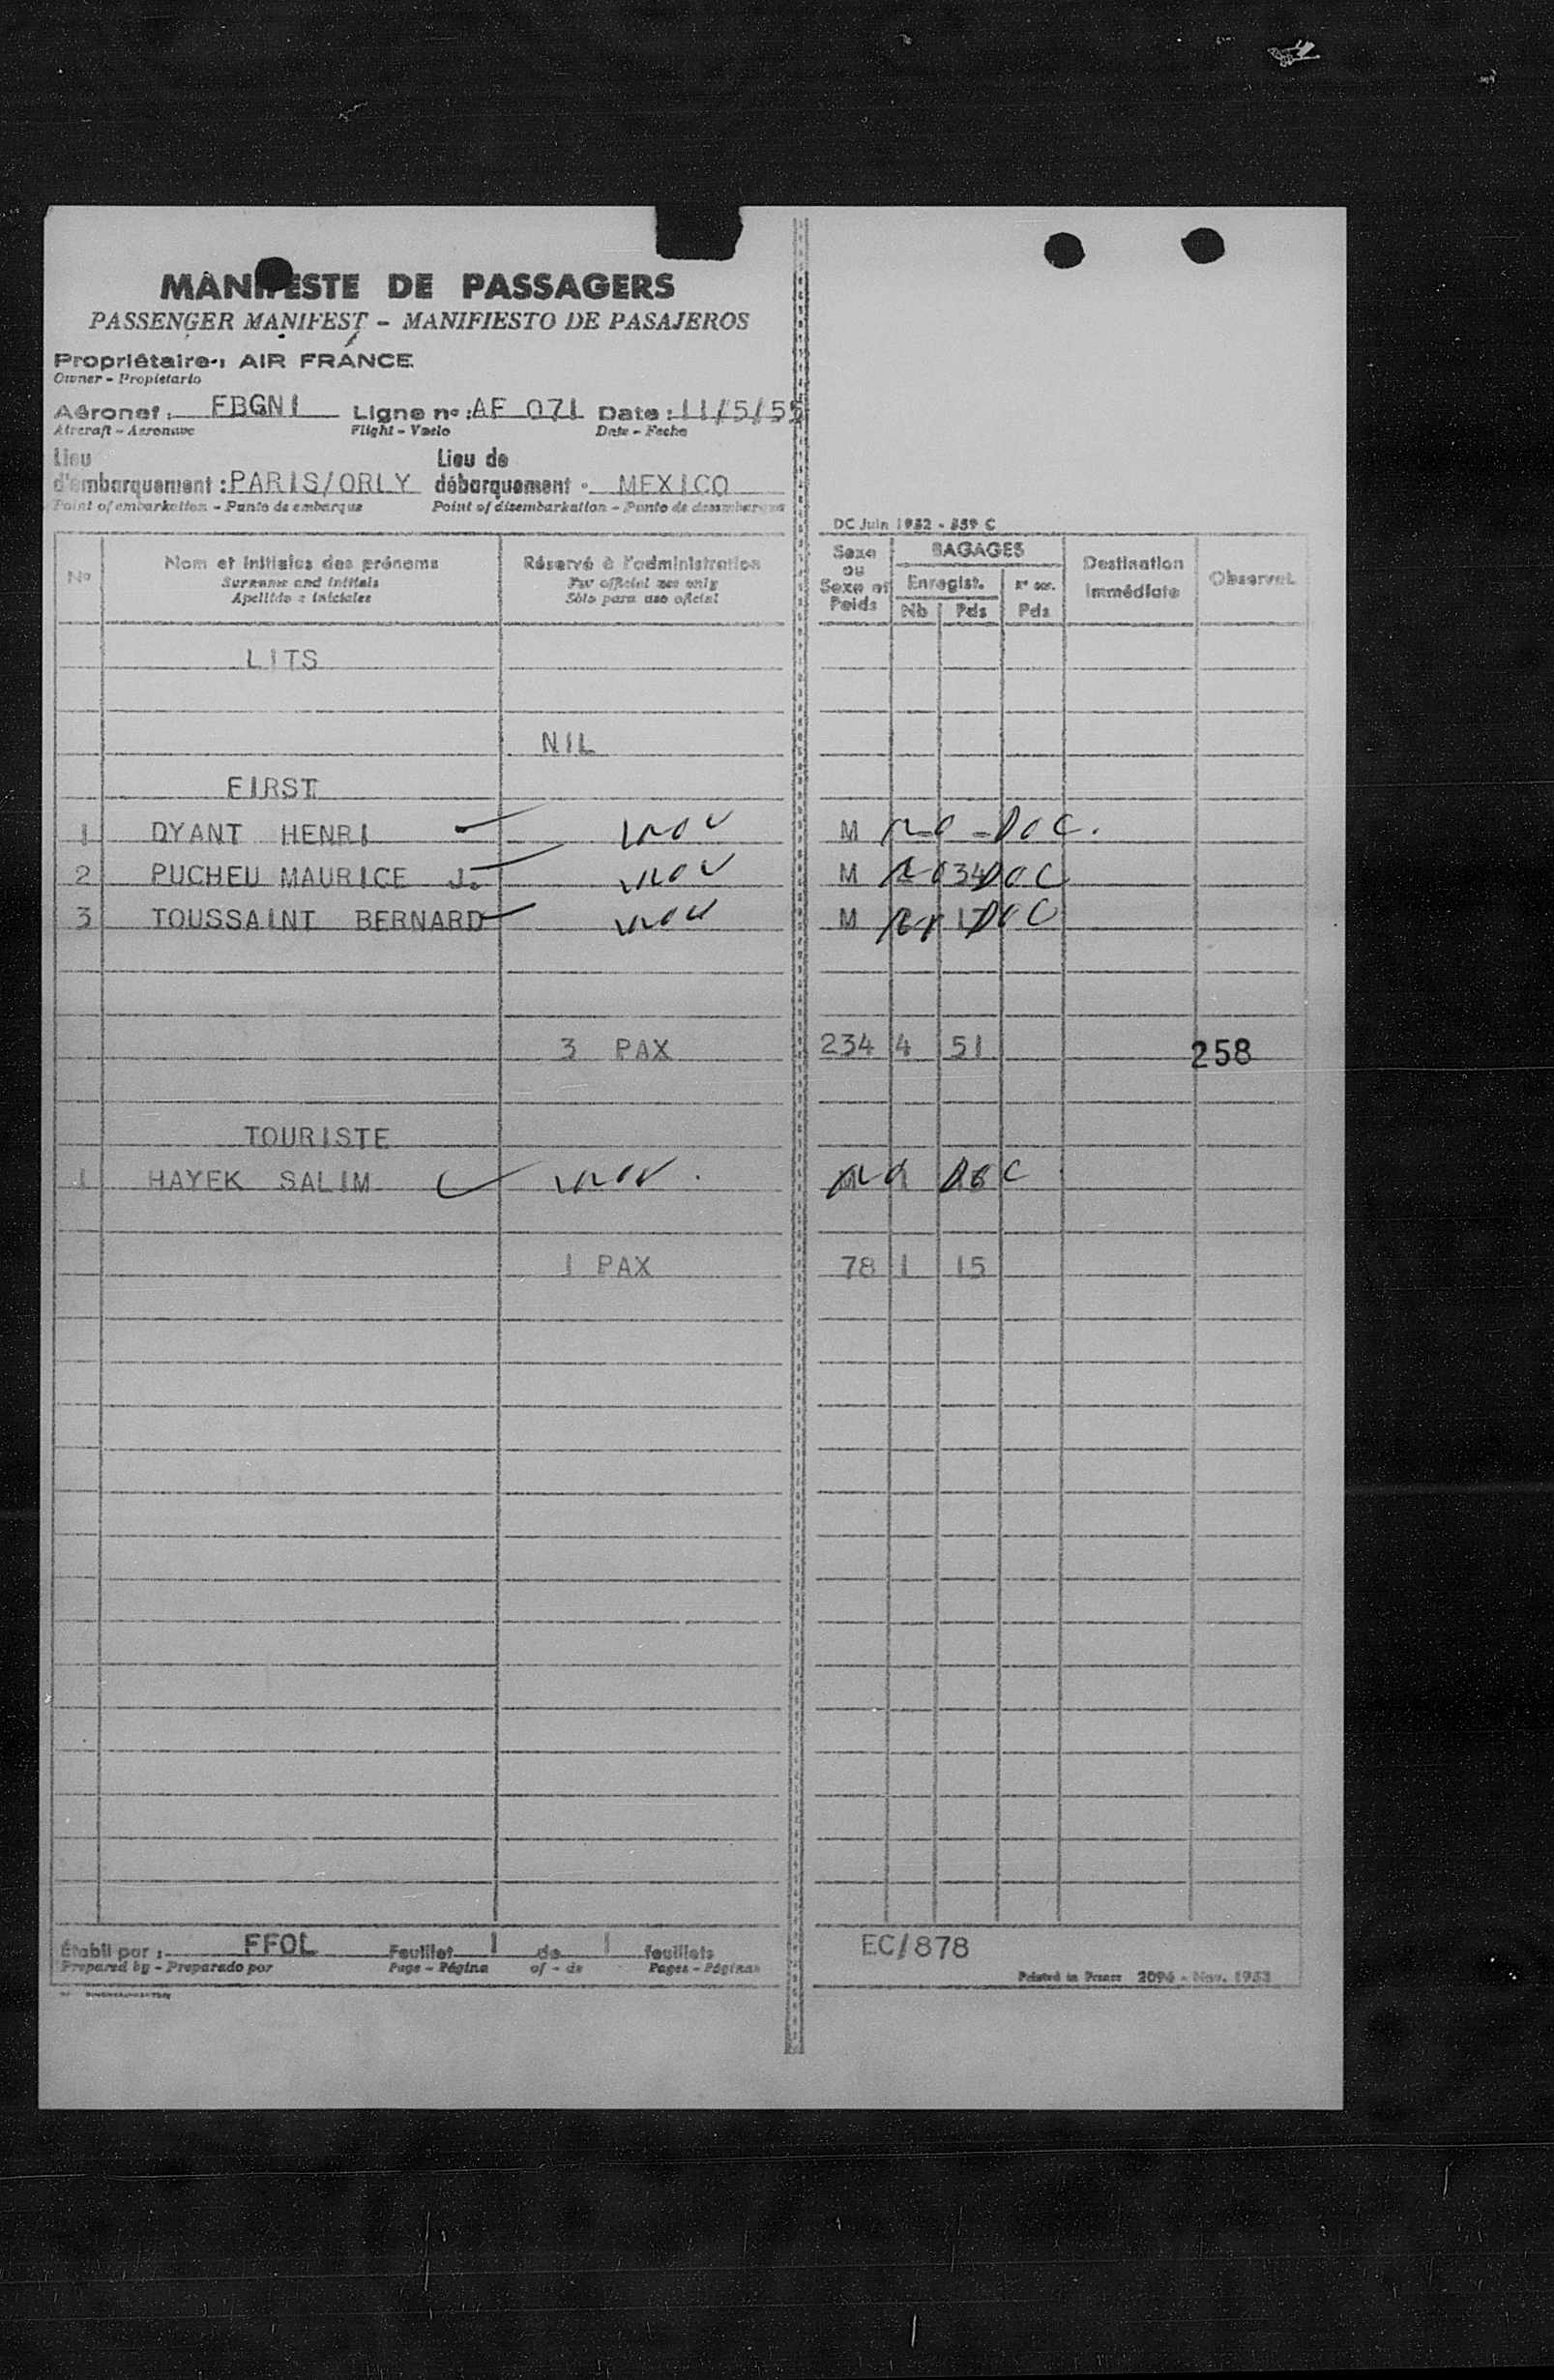 MANIFESTE DE PASSAGERS
PASSENGER MANIFEST - MANIFIESTO DE PASAJEROS
Propriétaire : AIR FRANCE
Owner - Propietario
Aéronef : FBGNI Ligne nº : AF 071 Date : 11/5/55
Aircraft - Aeronave Flight - Vuelo Date - Fecha
Lieu d'embarquement : PARIS/ORLY Lieu de débarquement : MEXICO
Point of embarkation - Punto de embarque Point of disembarkation - Punto de desembarque
DC Juin 1952 - 859 C
Nº Nom et initiales des prénoms Réservé à l'administration Sexe ou Sexe et Poids BAGAGES Destination immédiate Observat.
Surname and initials For official use only Enregist.
Apellido e iniciales Sólo para uso oficial Nb Pds Pds
LITS
NIL
FIRST
1 DYANT HENRI M NO - DOC.
2 PUCHEU MAURICE J. M NO 34 DOC
3 TOUSSAINT BERNARD M 17 DOC
3 PAX 234 4 51 258
TOURISTE
1 HAYEK SALIM NO DOC
1 PAX 78 1 15
Établi par : FFOL Feuillet 1 de 1 feuillets EC/878
Prepared by - Preparado por Page - Página of - de Pages - Páginas
Printed in France 2096 - Nov. 1953